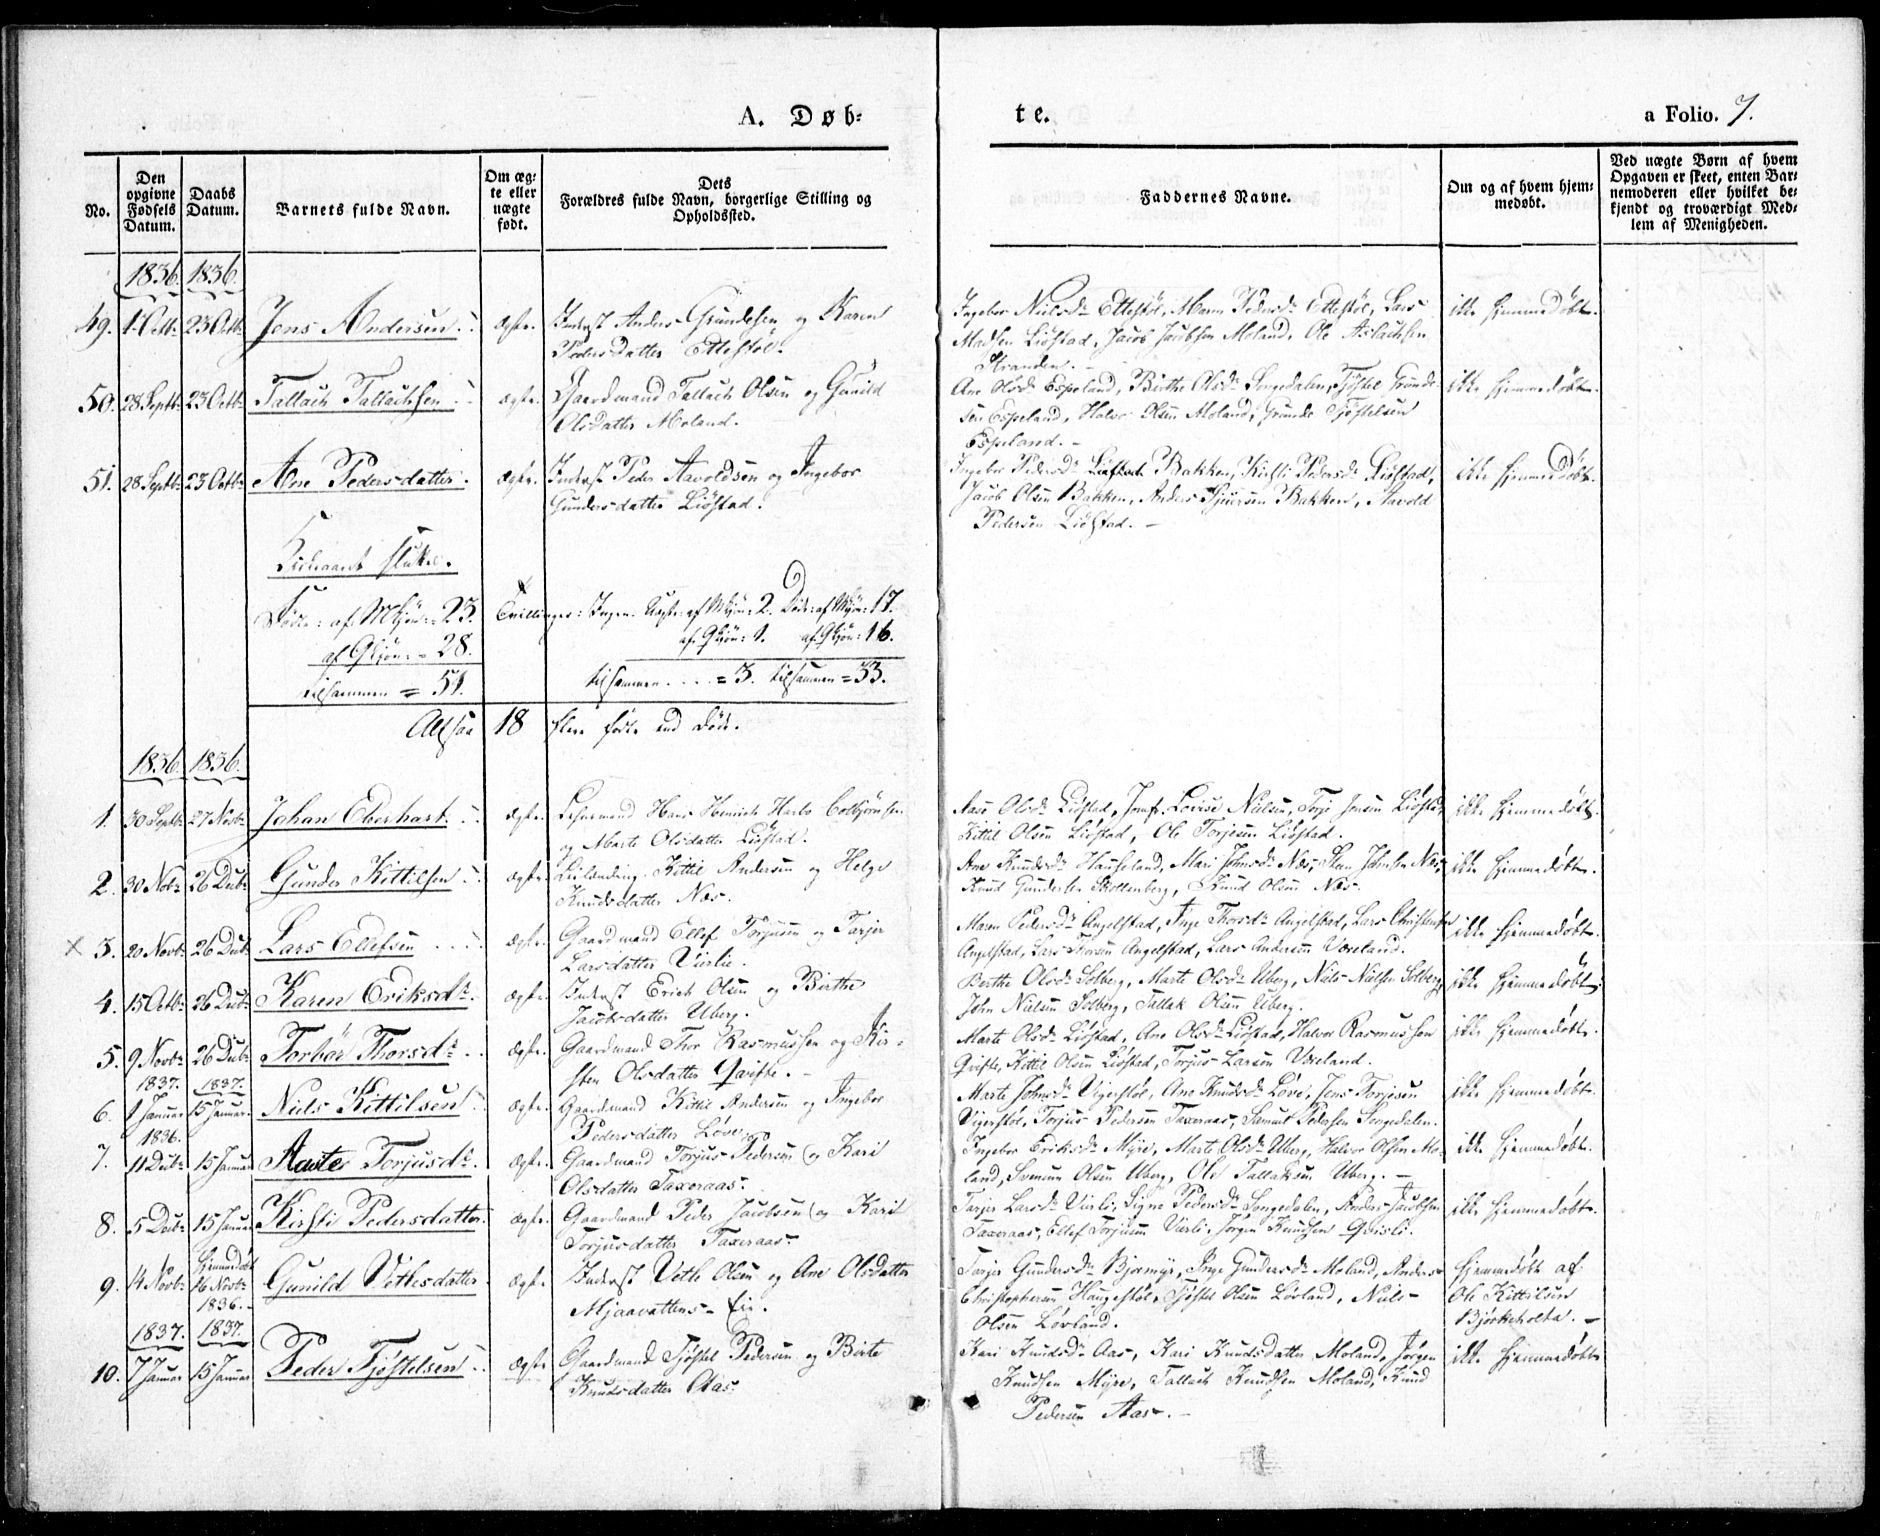 A. Døb=
te.
a Folio. 7.
No.
Den opgivne Fødsels Datum.
Daabs Datum.
Barnets fulde Navn.
Om æg= te eller uægte født.
Dets Forældres fulde Navn, borgerlige Stilling og Opholdssted.
Faddernes Navne.
Om og af hvem hjem= medøbt.
Ved uægte Børn af hvem Opgaven er skeet, enten Bar= nemoderen eller hvilket be= kjendt og troværdigt Med= lem af Menigheden.
1836. 1836.
49. 1 Octbr 23 Octbr Jens Andersen. ægte. Inderst Anders Grundesen og Karen
Pedersdatter Ettestøl.
Ingebor Nielsdr Ettestøl, Maren Pedersdr Ettestøl, Lars
Madsen Liøstad, Jacob Jacobsen Moland, Ole Aslachsen
Stranden. ikke hjemmedøbt.
50. 28 Septbr 23 Octbr Tallach Tallachsen ægte. Gaardmand Tallach Olsen og Gunild
Olsdatter Moland.
Ane Olsdr Espeland, Birthe Olsdr Songedalen, Tjøstel Grunde=
sen Espeland, Halvor Olsen Moland, Grunde Tjøstelsen
Espeland. - ikke hjemmedøbt.
51. 28 Septbr 23 Octbr Ane Pedersdatter. ægte. Inderst Peder Aavoldsen og Ingebor
Gundersdatter Liøstad.
Ingebor Pedersdr Liøstad Bakken, Kirsti Pedersdr Liøstad,
Jacob Olsen Bakken, Anders Bakken, Aavold
Pedersen Liøstad. - ikke hjemmedøbt.
Kirkeaaret sluttet.
Fødte: af Mkjøn: = 23. Tvillinger: Ingen. Uægte: af Mkjøn: 2. Døde: af Mkjøn: 17.
af Qkjøn: = 28. af Qkjøn: 1. af Qkjøn: 16.
tilsammen = 51. tilsammen . . . . = 3. tilsammen = 33.
Altsaa 18 flere fødte end døde.
1836. 1836.
1. 30 Septbr 27 Novbr Johan Eberhart. ægte. Lehnsmand Hans Henrich Harbo Colbjørnsen
og Marte Olsdatter Liøstad.
Aase Olsdr Liøstad, Jomfr. Lovise Nielsen, Terje Jensen Liøstad,
Kittil Olsen Liøstad, Ole Torjesen Liøstad. ikke hjemmedøbt.
2. 30 Nobr 26 Decbr Gunder Kittilsen ægte. Leilænding Kittil Andersen og Helge
Knudsdatter Næs.
Ane Knudsdr Hauseland, Mari Johnsdr Næs, Steen Johnsen Næs,
Knud Gundersen Skottenberg, Knud Olsen Næs. ikke hjemmedøbt.
x 3. 20 Novbr 26 Decbr Lars Ellefsen ægte. Gaardmand Ellef Torjusen og Tarjer
Larsdatter Vierlie.
Maren Pedersdr Angelstad, Inge Thorsdr Angelstad, Lars Christensen
Angelstad, Lars Thorsen Angelstad, Lars Andersen Væreland. ikke hjemmedøbt.
4. 15 Octbr 26 Decbr Karen Eriksdr ægte. Inderst Erich Olsen og Birthe
Jacobsdatter Uberg.
Berthe Olsdr Solberg, Marte Olsdr Uberg, Niels Nielsen Solberg,
John Nielsen Solberg, Tallak Olsen Uberg. ikke hjemmedøbt.
5. 9 Novbr 26 Decbr Torbør Thorsdr ægte. Gaardmand Thor Rasmussen og Kir=
sten Olsdatter Qvifte. -
Marte Olsdr Liøstad, Ane Olsdr Liøstad, Halvor Rasmussen
Qvifte, Kittil Olsen Liøstad, Torjus Larsen Væreland. ikke hjemmedøbt.
1837. 1837.
6. 1 Januar 15 Januar Niels Kittilsen ægte. Gaardmand Kittil Andersen og Ingebor
Pedersdatter Løve.
Marte Johnsdr Vigerstøl, Ane Knudsdr Løve, Jens Torjesen
Vigerstøl, Torjus Pedersen Taxeraas, Samuel Pedersen Songedalen. ikke hjemmedøbt.
1836.
7. 11 Decbr 15 Januar Aaste Torjusdr ægte. Gaardmand Torjus Pedersen og Kari
Olsdatter Taxeraas.
Ingebor Eriksdr Myre, Marte Olsdr Uberg, Halvor Olsen Mo=
land, Svenum Olsen Uberg, Ole Tallaksen Uberg. - ikke hjemmedøbt.
8. 5 Decbr 15 Januar Kirsti Pedersdatter ægte. Gaardmand Peder Jacobsen og Kari
Torjusdatter Taxeraas.
Tarjer Larsdr Vierli, Signe Pedersdr Songedalen, Anders Jacobsen
Taxeraas, Ellef Torjusen Vierli, Jørgen Knudsen Qvisli. ikke hjemmedøbt.
9. 14 Novbr Hjemmedøbt 16 Novbr 1836. Gunild Vetlesdatter ægte. Inderst Vetle Olsen og Ane Olsdatter
Mjaavattens- Eie.
Tarjer Gundersdr Bjormyr, Inge Gundersdr Moland, Anders
Christophersen Haugestøl, Tjøstel Olsen Løvland, Niels
Olsen Løvland. hjemmedøbt af
Ole Kittilsen
Bjørkeholta. -
1837. 1837.
10. 7 Januar 15 Januar Peder Tjøstelsen ægte Gaardmand Tjøstel Pedersen og Birte
Knudsdatter Aas.
Kari Knudsdr Aas, Kari Knudsdatter Moland, Jørgen
Knudsen Myre, Tallach Knudsen Moland, Knud
Pedersen Aas. - ikke hjemmedøbt